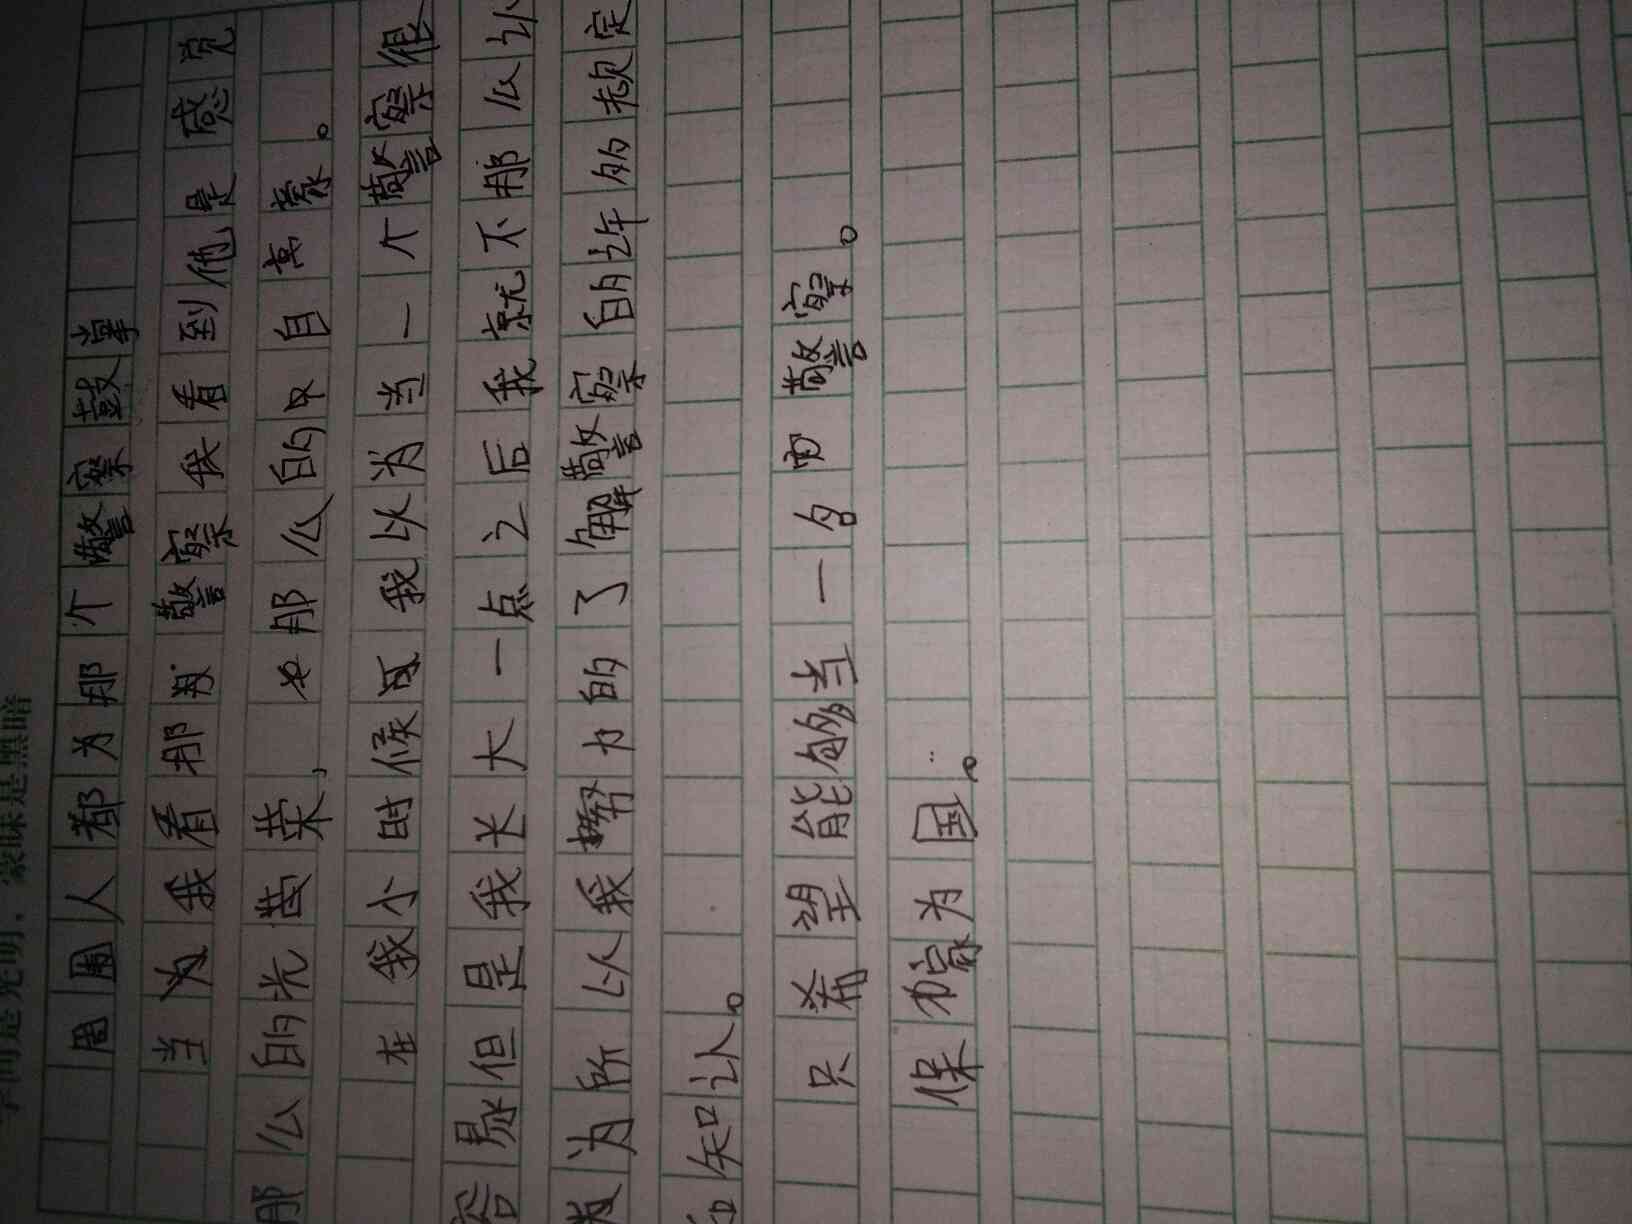 是光明，蒙昧是黑暗
周围人都为那个警察鼓掌
当我看那警察我看到他是感觉
那么的光荣，那么的自豪。
在我小时候我以为当一个警察很
容易但是我长大一点之后我就不那么认
为所以我努力的了解警察的许多规定
和知认。
只希望能够当一名警察。
保家为国。